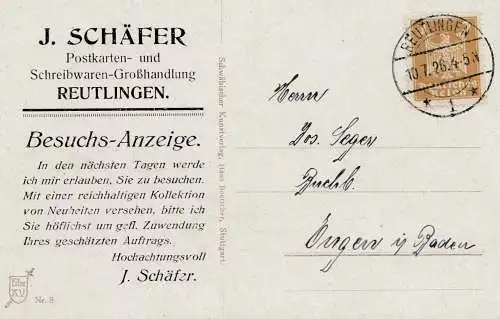 J. SCHÄFER
Postkarten- und
Schreibwaren-Großhandlung
REUTLINGEN.
Besuchs-Anzeige.
In den nächsten Tagen werde
ich mir erlauben, Sie zu besuchen.
Mit einer reichhaltigen Kollektion
von Neuheiten versehen, bitte ich
Sie höflichst um gefl. Zuwendung
Ihres geschätzten Auftrags.
Hochachtungsvoll
J. Schäfer.
Nr. 8
Schwäbischer Kunstverlag, Hans Boettcher, Stuttgart.
REUTLINGEN
10.7.26.4-5 N
* 1 *
Herrn
Jos. Seger
Buchb.
Engen i/ Baden